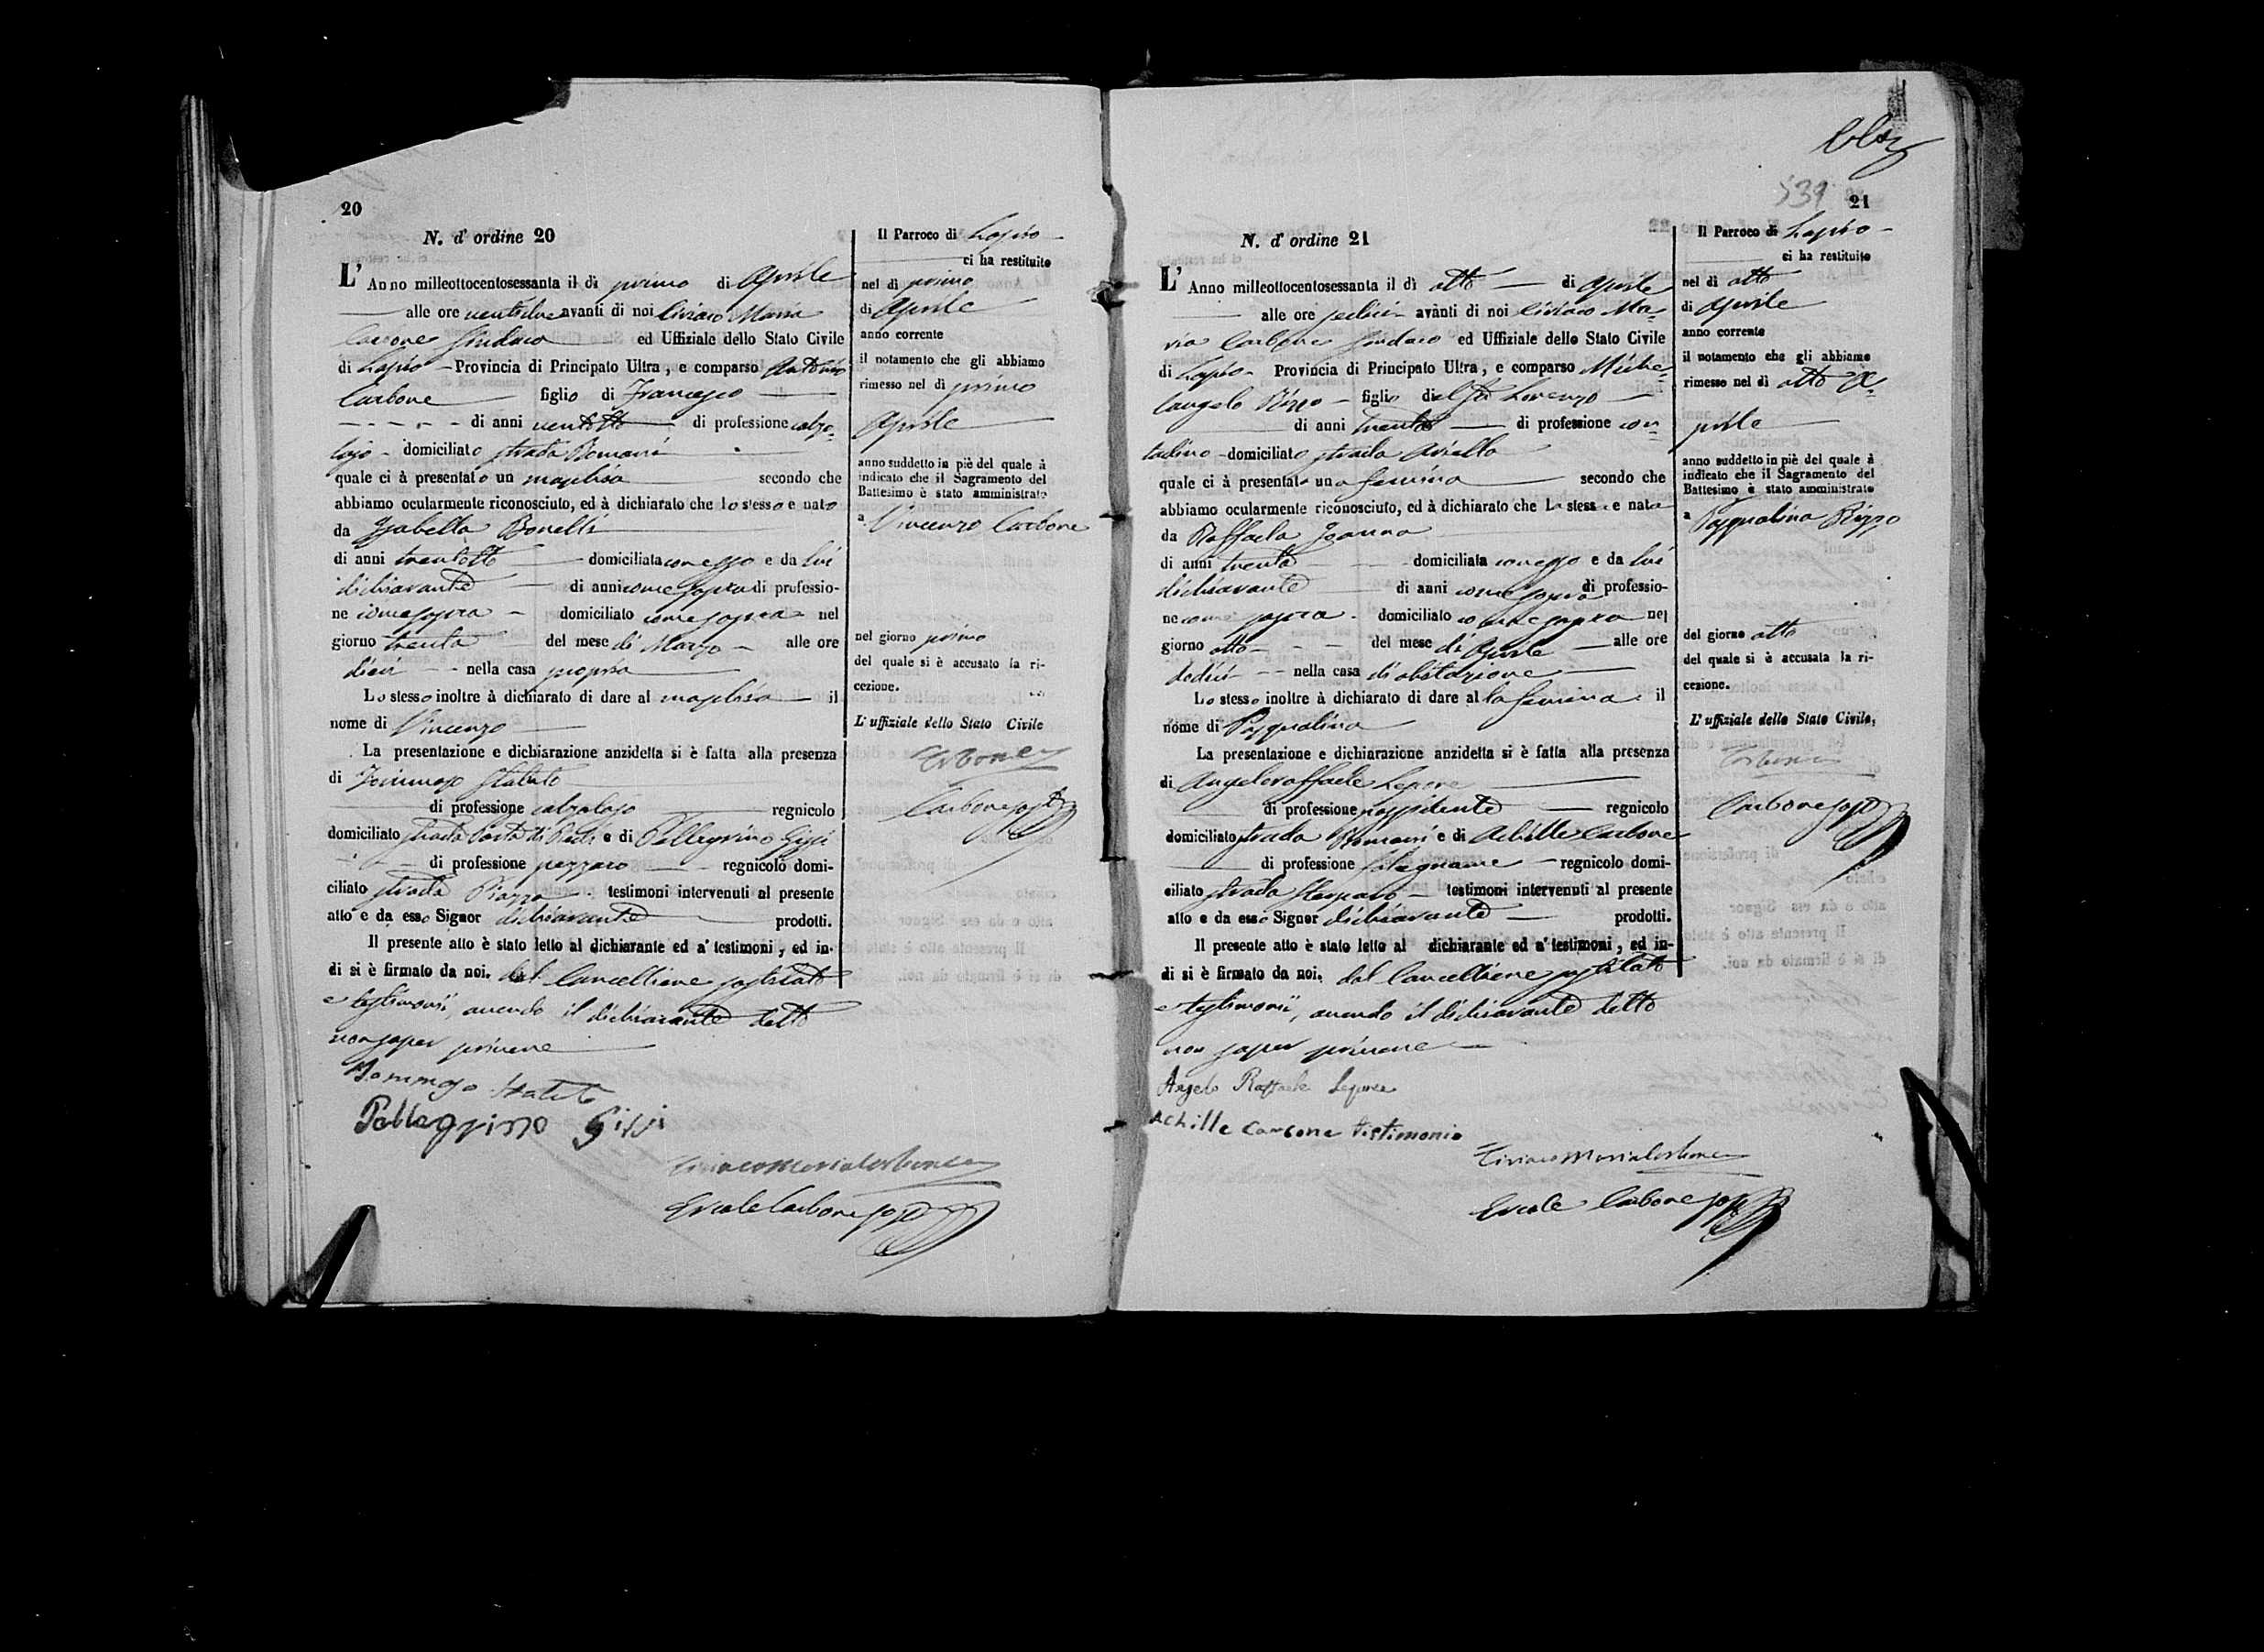 20
N. d' ordine 20
L' Anno milleottocentosessanta il di primo di Aprile
alle ore ventidue avanti di noi Ciriaco Maria
Carbone Sindaco ed Uffiziale dello Stato Civile
di Lapio Provincia di Principato Ultra, e comparso Antonio
Carbone figlio di Francesco
di anni ventotto di professione calzo=
lajo domiciliato strada Romani
quale ci à presentato un maschio secondo che
abbiamo ocularmente riconosciuto, ed à dichiarato che lo stesso e nato
da Isabella Bonelli
di anni trentotto domiciliata con esso e da lui
dichiarante di anni come sopra di professio-
ne come sopra domiciliato come sopra nel
giorno trenta del mese di Marzo alle ore
dieci nella casa propria
Lo stesso inoltre à dichiarato di dare al maschio il
nome di Vincenzo
La presentazione e dichiarazione anzidetta si è fatta alla presenza
di Tommaso Statuto
di professione calzolajo regnicolo
domiciliato strada Porta di Piedi e di Pellegrino Gissi
di professione regnicolo domi-
ciliato strada Piazza testimoni intervenuti al presente
atto e da esso Signor dichiarante prodotti.
Il presente atto è stato letto al dichiarante ed a' testimoni, ed in-
di si è firmato da noi. dal Cancelliere sostituto
e testimonii, avendo il dichiarante detto
non saper scrivere
Tommaso Statuto
Pellegrino Gissi
Ciriaco Maria Carbone
Ercole Carbone sosto
Il Parroco di Lapio
ci ha restituito
nel di primo
di Aprile
anno corrente
il notamento che gli abbiamo
rimesso nel di primo
Aprile
anno suddetto in piè del quale à
indicato che il Sagramento del
Battesimo è stato amministrato
a Vincenzo Carbone
nel giorno primo
del quale si è accusato la ri-
cezione.
L' uffiziale dello Stato Civile
Carbone
Carbone sosto
539
21
N. d' ordine 21
L' Anno milleottocentosessanta il dì otto di Aprile
alle ore sedici avanti di noi Ciriaco Ma=
ria Carbone Sindaco ed Uffiziale dello Stato Civile
di Lapio Provincia di Principato Ultra, e comparso Miche=
langelo Rizzo figlio del fu Lorenzo
di anni trenta di professione con=
tadino domiciliato strada Ariella
quale ci à presentato una femina secondo che
abbiamo ocularmente riconosciuto, ed à dichiarato che La stessa e nata
da Raffaela Joanna
di anni trenta domiciliata con esso e da lui
dichiarante di anni come sopra di professio-
ne come sopra domiciliato come sopra nel
giorno otto del mese di Aprile alle ore
dodici nella casa di abitazione
Lo stesso inoltre à dichiarato di dare alla femina il
nome di Pasqualina
La presentazione e dichiarazione anzidetta si è fatta alla presenza
di Angeloraffaele Lepore
di professione possidente regnicolo
domiciliato strada Romani e di Achille Carbone
di professione falegname regnicolo domi-
ciliato strada testimoni intervenuti al presente
atto e da esso Signor dichiarante prodotti.
Il presente atto è stato letto al dichiarante ed a' testimoni, ed in-
di si è firmato da noi. dal Cancelliere sostituto
e testimonii, avendo il dichiarante detto
non saper scrivere
Angelo Raffaele Lepore
Achille Carbone testimonio
Ciriaco Maria Carbone
Ercole Carbone sosto
Il Parroco di Lapio
ci ha restituito
nel dì otto
di Aprile
anno corrente
il notamento che gli abbiamo
rimesso nel dì otto A=
prile
anno suddetto in piè del quale à
indicato che il Sagramento del
Battesimo è stato amministrato
a Pasqualina Rizzo
del giorno otto
del quale si è accusata la ri-
cezione.
L' uffiziale dello Stato Civile,
Carbone
Carbone sosto